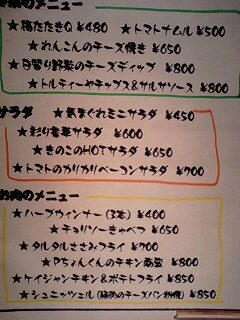 菜のメニュー
★梅たたきQ ¥480 ★トマトナムル ¥500
★れんこんのチーズ焼き ¥650
★日替り野菜のチーズディップ ¥800
★トルティーヤチップス&サルサソース ¥800
サラダ ★気まぐれミニサラダ ¥450
★彩り香草サラダ ¥600
★きのこのHOTサラダ ¥650
★トマトのカリカリベーコンサラダ ¥700
お肉のメニュー
★ハーブウィンナー(3本) ¥400
★チョリソーきゃべつ ¥650
★タルタルささみフライ ¥700
★Pちょんくのチキン南蛮 ¥800
★ケイジャンチキン&ポテトフライ ¥850
★シュニッツェル(豚肉のチーズパン粉焼) ¥850